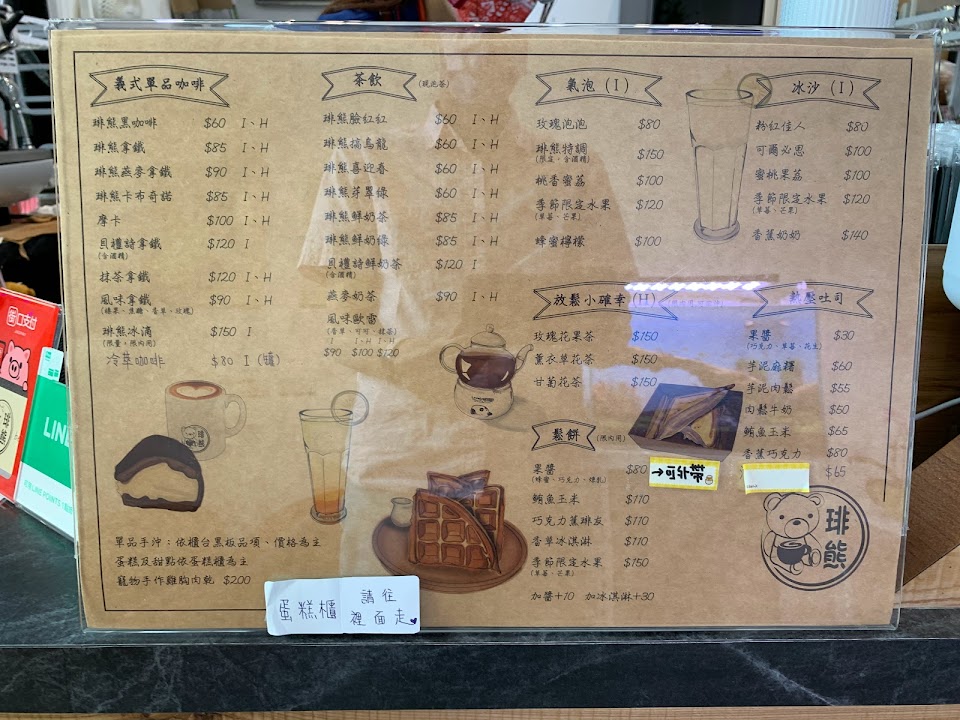 義式單品咖啡
琲熊黑咖啡 $60 I、H
琲熊拿鐵 $85 I、H
琲熊燕麥拿鐵 $90 I、H
琲熊卡布奇諾 $85 I、H
摩卡 $100 I、H
貝禮詩拿鐵 $120 I
(含酒精)
抹茶拿鐵 $120 I、H
風味拿鐵 $90 I、H
(榛果、焦糖、香草、玫瑰)
琲熊冰滴 $150 I
(限量、限內用)
冷萃咖啡 $80 I (罐)
茶飲(現泡茶)
琲熊臉紅紅 $60 I、H
琲熊搞烏龍 $60 I、H
琲熊喜迎春 $60 I、H
琲熊芽翠綠 $60 I、H
琲熊鮮奶茶 $85 I、H
琲熊鮮奶綠 $85 I、H
貝禮詩鮮奶茶 $120 I
(含酒精)
燕麥奶茶 $90 I、H
風味歐蕾
(香草、可可、抹茶)
I I、H I、H
$90 $100 $120
氣泡(I)
玫瑰泡泡 $80
琲熊特調 $150
(限定、含酒精)
桃香蜜荔 $100
季節限定水果 $120
(草莓、芒果)
蜂蜜檸檬 $100
冰沙(I)
粉紅佳人 $80
可爾必思 $100
蜜桃果荔 $100
季節限定水果 $120
(草莓、芒果)
香蕉奶奶 $140
放鬆小確幸(H)
玫瑰花果茶 $150
薰衣草花茶 $150
甘菊花茶 $150
熱壓吐司
果醬 $30
(巧克力、草莓、花生)
芋泥麻糬 $60
芋泥肉鬆 $55
肉鬆牛奶 $50
鮪魚玉米 $65
香蕉巧克力 $80
$65
鬆餅(限內用)
果醬 $80
(蜂蜜、巧克力、煉乳)
鮪魚玉米 $110
巧克力蕉琲友 $110
香草冰淇淋 $110
季節限定水果 $150
(草莓、芒果)
加醬+10 加冰淇淋+30
→可外帶
單品手沖:依櫃台黑板品項、價格為主
蛋糕及甜點依蛋糕櫃為主
寵物手作雞胸肉乾 $200
蛋糕櫃 請往
裡面走
琲熊
琲熊
口支付
LINE
LINE POINTS